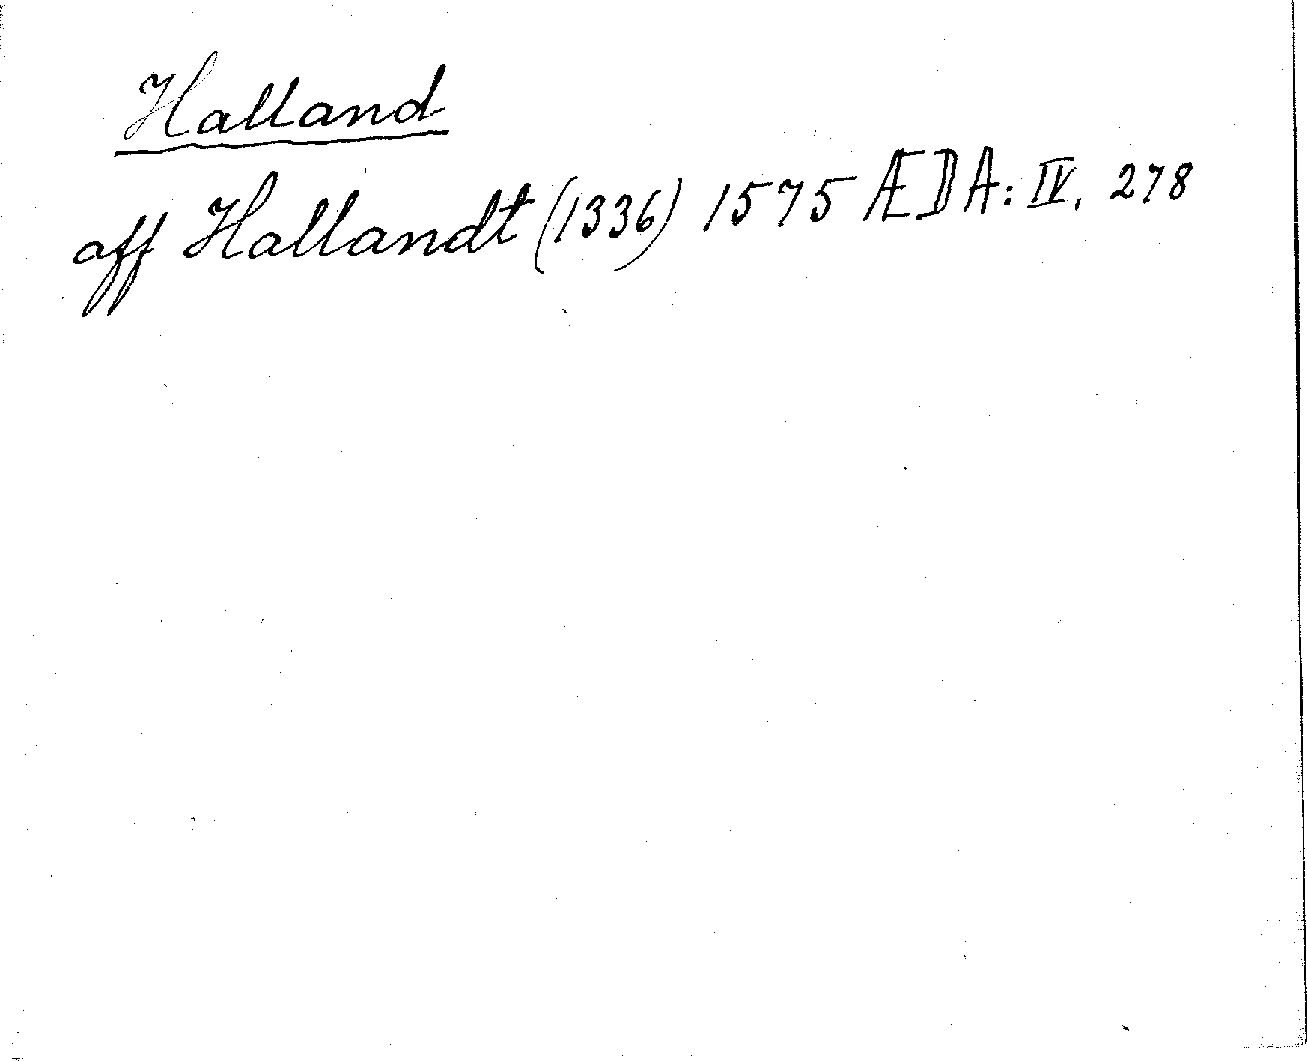 Halland
aff Hallandt (1336) 1575 ÆDA: IV, 278